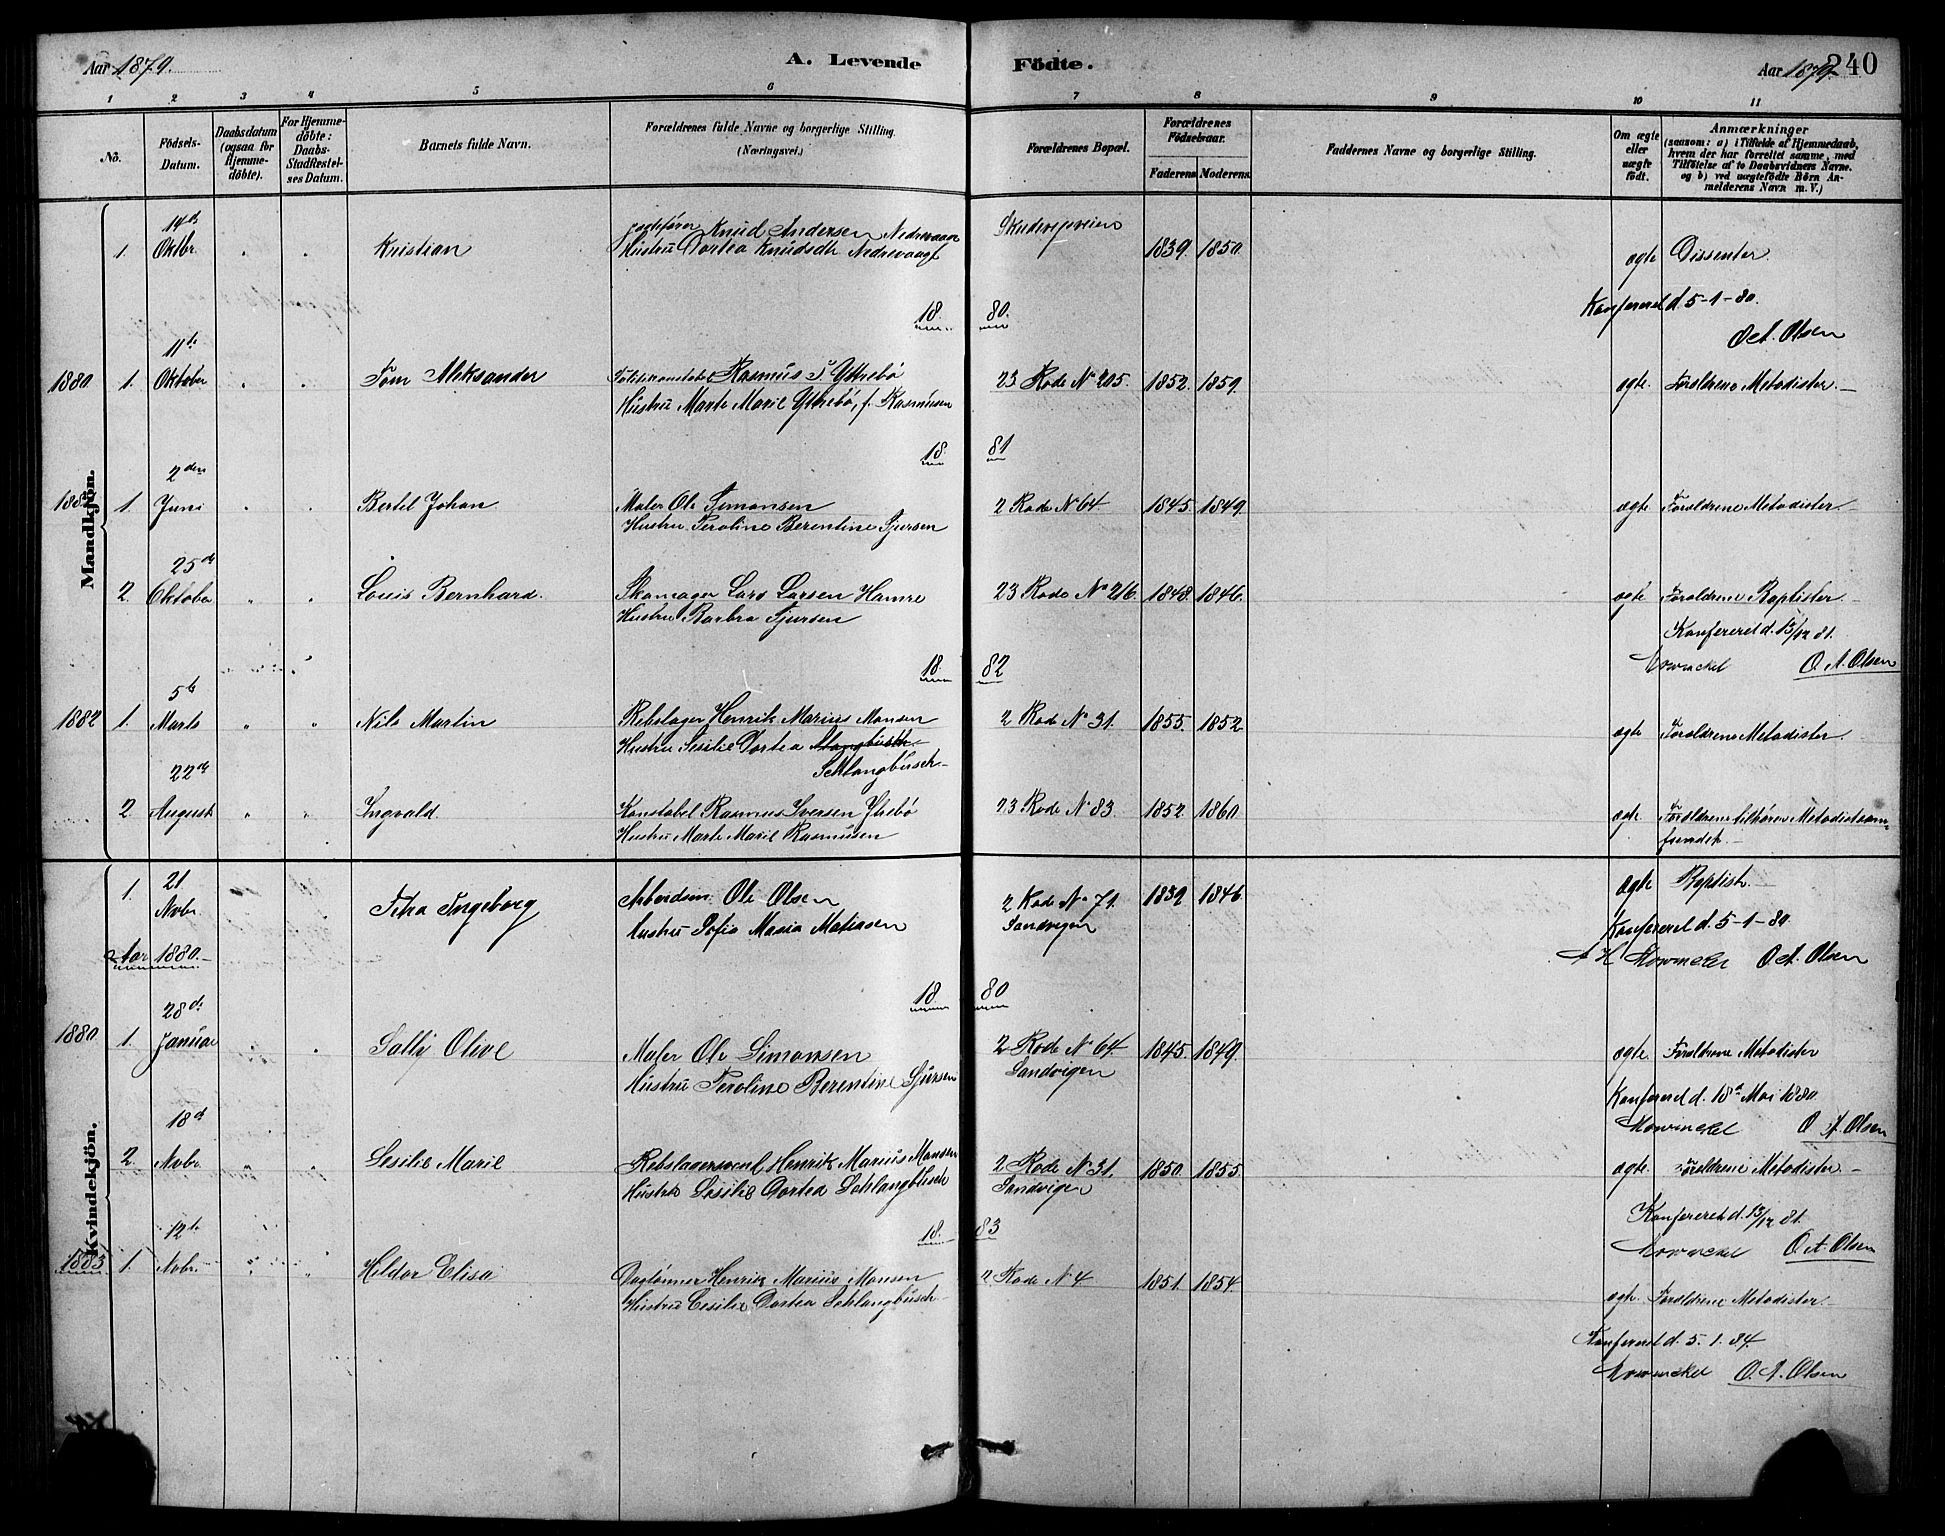 Aar 1879.
A. Levende Födte.
Aar 1879.
240
1 2 3 4 5 6 7 8 9 10 11
No.
Födsels-Datum.
Daabsdatum (ogsaa for Hjemme-döbte).
For Hjemme-döbte: Daabs-Stadfæstel-ses Datum.
Barnets fulde Navn.
Forældrenes fulde Navne og borgerlige Stilling.
(Næringsvei.)
Forældrenes Bopæl.
Forældrenes Födselsaar.
Faderens Moderens
Faddernes Navne og borgerlige Stilling.
Om ægte eller uægte født.
Anmærkninger
(saasom: a) i Tilfælde af Hjemmedaab, hvem der har forrettet samme, med Tilföielse af to Daabsvidners Navne. og b) ved uægtefödte Börn Anmelderens Navn m. V.)
Mandkjön.
14de
1. Oktbr. Kristian Knud Andersen 1839. 1850. ægte Dissenter.
Hustru Dortea Knudsdtr
Konfereret d. 5-1-80.
18 80.
O. A. Olsen
11te
1880. 1. Oktober Tom Aleksander Rasmus I Yttrebö 23 Rode No 205. 1852. 1859. ægte Forældrene Metodister.
Hustru Marte Marie Yttrebö, f. Rasmusen
18 81
2den
1. Juni Bertel Johan Maler Ole Simonsen 2 Rode No 64 1845. 1849. ægte Forældrene Metodister.
Hustru Peroline Berentine Sjursen
25de
2. Oktober Louis Bernhard. Skomager Lars Larsen Hamre 23 Rode No 216. 1848. 1846. ægte Forældrene Baptister
Hustru Barbra Sjursen
Konfereret d. 13/12 81.
18. 82
Mowinckel O. A. Olsen
5te
1882 1. Marts Nils Martin Rebslager Henrik Marius Monsen 2 Rode No 31. 1855. 1852 ægte Forældrene Metodister.
Hustru Sesilie Dortea
Schlangbusch
22de
2 August Ingvald. Konstabel Rasmus Iversen Ytrebö 23 Rode No 83 1852. 1860 ægte Forældrene tilhører Metodistsam-
Hustru Marte Marie Rasmusen
fundet.
Kvindekjön.
1. 21 Nvbr Petra Ingeborg Arbeidsm. Ole Olsen 2 Rode No 71. 1839 1846. ægte Baptist
Hustru Sofia Maria Matiasen Sandvigen
Konfereret d. 5-1-80.
Aar 1880.
H Mowinckel O. A. Olsen
18 80
28de
1880. 1. Januar Sally Olive Maler Ole Simonsen 2 Rode No 64 1845. 1849. ægte Forældrene Metodister
Hustru Peroline Berentine Sjursen Sandvigen
Konfereret d. 18de Mai 1880
Mowinckel O. A. Olsen
18de
2. Nvbr. Sesilie Marie Rebslagersvend Henrik Marius Monsen 2 Rode No 31. 1850. 1855. ægte Forældrene Metodister
Hustru Sesilie Dortea Schlangbusch Sandvigen
Konfereret d. 13/12 81.
18. 83
Mowinckel O. A. Olsen
12te
1883 1. Nvbr. Hildor Elisa Daglønner Henrik Marius Monsen 2 Rode No 4 1851. 1854. ægte. Forældrene Metodister.
Hustru Cesilie Dortea Schlangbusch
Konfereret d. 5. 1. 84.
Mowinckel O. A. Olsen